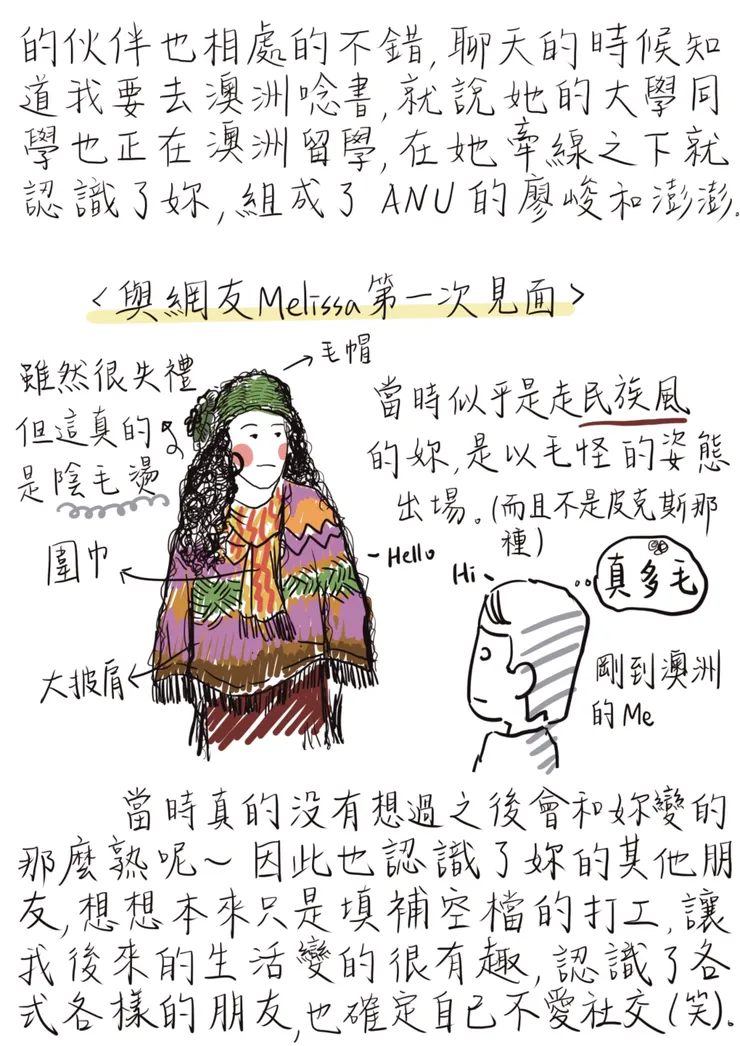 的伙伴也相處的不錯,聊天的時候知
道我要去澳洲唸書,就說她的大學同
學也正在澳洲留學,在她牽線之下就
認識了妳,組成了ANU的廖峻和澎澎.
<與網友Melissa第一次見面>
毛帽
雖然很失禮
但這真的
是陰毛燙
圍巾
大披肩
當時似乎是走民族風
的妳,是以毛怪的姿態
出場。(而且不是皮克斯那
種)
-Hello
Hi
真多毛
剛到澳洲
的Me
當時真的没有想過之後會和妳變的
那麼熟呢~因此也認識了妳的其他朋
友,想想本來只是填補空檔的打工,讓
我後來的生活變的很有趣,認識了各
式各樣的朋友,也確定自己不愛社交(笑).